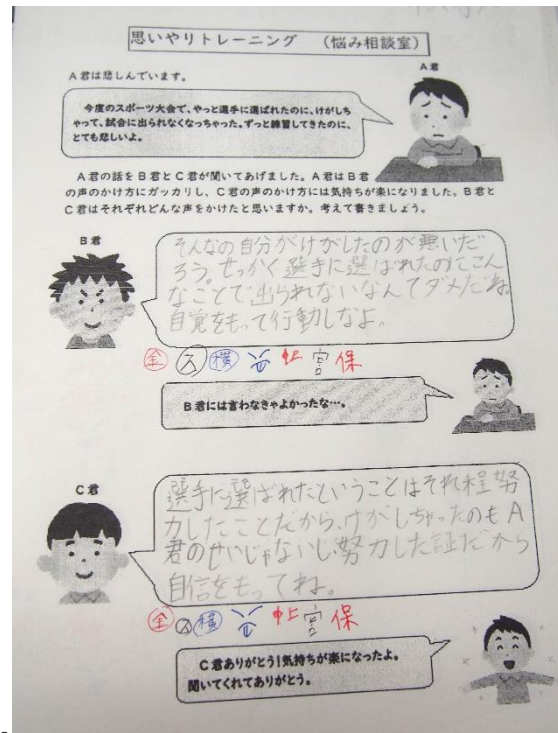 思いやりトレーニング （悩み相談室）
A君は悲しんでいます。
A君
今度のスポーツ大会で、やっと選手に選ばれたのに、けがしち
ゃって、試合に出られなくなっちゃった。ずっと練習してきたのに、
とても悲しいよ。
A君の話をB君とC君が聞いてあげました。A君はB君
の声のかけ方にガッカリし、C君の声のかけ方には気持ちが楽になりました。B君と
C君はそれぞれどんな声をかけたと思いますか。考えて書きましょう。
B君
そんなの自分がけがしたのが悪いだ
ろう。せっかく選手に選ばれたのにこん
なことで出られないなんてダメだね。
自覚をもって行動しなよ。
金 横 宮 保
B君には言わなきゃよかったな…。
C君
選手に選ばれたということはそれ程努
力したことだから、けがしちゃったのもA
君のせいじゃないし努力した証だから
自信をもってね。
金 横 宮 保
C君ありがとう！気持ちが楽になったよ。
聞いてくれてありがとう。